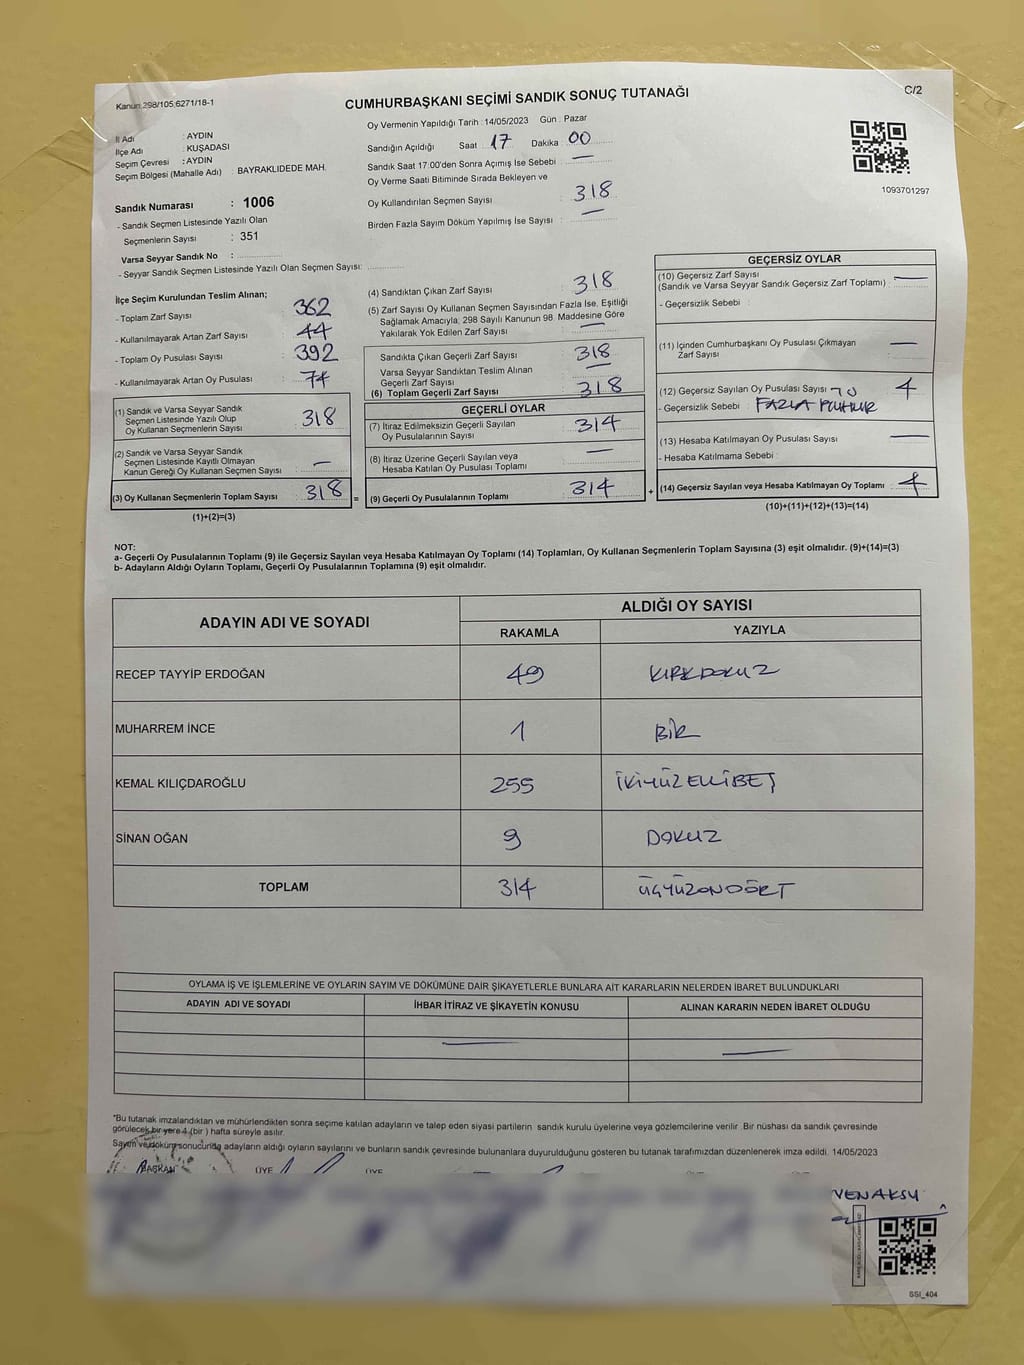 Kanun:298/105;6271/18-1
C/2
CUMHURBAŞKANI SEÇİMİ SANDIK SONUÇ TUTANAĞI
İl Adı : AYDIN
İlçe Adı : KUŞADASI
Seçim Çevresi : AYDIN
Seçim Bölgesi (Mahalle Adı) : BAYRAKLIDEDE MAH.
Sandık Numarası : 1006
- Sandık Seçmen Listesinde Yazılı Olan
Seçmenlerin Sayısı : 351
Varsa Seyyar Sandık No :
- Seyyar Sandık Seçmen Listesinde Yazılı Olan Seçmen Sayısı:
Oy Vermenin Yapıldığı Tarih : 14/05/2023 Gün : Pazar
Sandığın Açıldığı Saat 17 Dakika 00
Sandık Saat 17:00'den Sonra Açımış İse Sebebi : —
Oy Verme Saati Bitiminde Sırada Bekleyen ve
Oy Kullandırılan Seçmen Sayısı : 318
Birden Fazla Sayım Döküm Yapılmış İse Sayısı : —
1093701297
İlçe Seçim Kurulundan Teslim Alınan;
- Toplam Zarf Sayısı : 362
- Kullanılmayarak Artan Zarf Sayısı : 44
- Toplam Oy Pusulası Sayısı : 392
- Kullanılmayarak Artan Oy Pusulası : 74
(1) Sandık ve Varsa Seyyar Sandık
Seçmen Listesinde Yazılı Olup
Oy Kullanan Seçmenlerin Sayısı : 318
(2) Sandık ve Varsa Seyyar Sandık
Seçmen Listesinde Kayıtlı Olmayan
Kanun Gereği Oy Kullanan Seçmen Sayısı : —
(3) Oy Kullanan Seçmenlerin Toplam Sayısı : 318 =
(1)+(2)=(3)
(4) Sandıktan Çıkan Zarf Sayısı : 318
(5) Zarf Sayısı Oy Kullanan Seçmen Sayısından Fazla İse, Eşitliği
Sağlamak Amacıyla; 298 Sayılı Kanunun 98. Maddesine Göre
Yakılarak Yok Edilen Zarf Sayısı : —
Sandıkta Çıkan Geçerli Zarf Sayısı : 318
Varsa Seyyar Sandıktan Teslim Alınan
Geçerli Zarf Sayısı : —
(6) Toplam Geçerli Zarf Sayısı : 318
GEÇERLİ OYLAR
(7) İtiraz Edilmeksizin Geçerli Sayılan
Oy Pusulalarının Sayısı : 314
(8) İtiraz Üzerine Geçerli Sayılan veya
Hesaba Katılan Oy Pusulası Toplamı : —
(9) Geçerli Oy Pusulalarının Toplamı : 314 +
GEÇERSİZ OYLAR
(10) Geçersiz Zarf Sayısı
(Sandık ve Varsa Seyyar Sandık Geçersiz Zarf Toplamı) : —
- Geçersizlik Sebebi :
(11) İçinden Cumhurbaşkanı Oy Pusulası Çıkmayan
Zarf Sayısı : —
(12) Geçersiz Sayılan Oy Pusulası Sayısı : 4
- Geçersizlik Sebebi : FAZLA
(13) Hesaba Katılmayan Oy Pusulası Sayısı : —
- Hesaba Katılmama Sebebi :
(14) Geçersiz Sayılan veya Hesaba Katılmayan Oy Toplamı : 4
(10)+(11)+(12)+(13)=(14)
NOT:
a- Geçerli Oy Pusulalarının Toplamı (9) ile Geçersiz Sayılan veya Hesaba Katılmayan Oy Toplamı (14) Toplamları, Oy Kullanan Seçmenlerin Toplam Sayısına (3) eşit olmalıdır. (9)+(14)=(3)
b- Adayların Aldığı Oyların Toplamı, Geçerli Oy Pusulalarının Toplamına (9) eşit olmalıdır.
ADAYIN ADI VE SOYADI
ALDIĞI OY SAYISI
RAKAMLA YAZIYLA
RECEP TAYYİP ERDOĞAN 49 KIRKDOKUZ
MUHARREM İNCE 1 BİR
KEMAL KILIÇDAROĞLU 255 İKİYÜZELLİBEŞ
SİNAN OĞAN 9 DOKUZ
TOPLAM 314 ÜÇYÜZONDÖRT
OYLAMA İŞ VE İŞLEMLERİNE VE OYLARIN SAYIM VE DÖKÜMÜNE DAİR ŞİKAYETLERLE BUNLARA AİT KARARLARIN NELERDEN İBARET BULUNDUKLARI
ADAYIN ADI VE SOYADI İHBAR İTİRAZ VE ŞİKAYETİN KONUSU ALINAN KARARIN NEDEN İBARET OLDUĞU
— —
*Bu tutanak imzalandıktan ve mühürlendikten sonra seçime katılan adayların ve talep eden siyasi partilerin sandık kurulu üyelerine veya gözlemcilerine verilir. Bir nüshası da sandık çevresinde
görülecek bir yere 4 (bir) hafta süreyle asılır.
Sayım ve döküm sonucunda adayların aldığı oyların sayılarını ve bunların sandık çevresinde bulunanlara duyurulduğunu gösteren bu tutanak tarafımızdan düzenlenerek imza edildi. 14/05/2023
BAŞKAN ÜYE ÜYE
VENAKSU
SSI_404